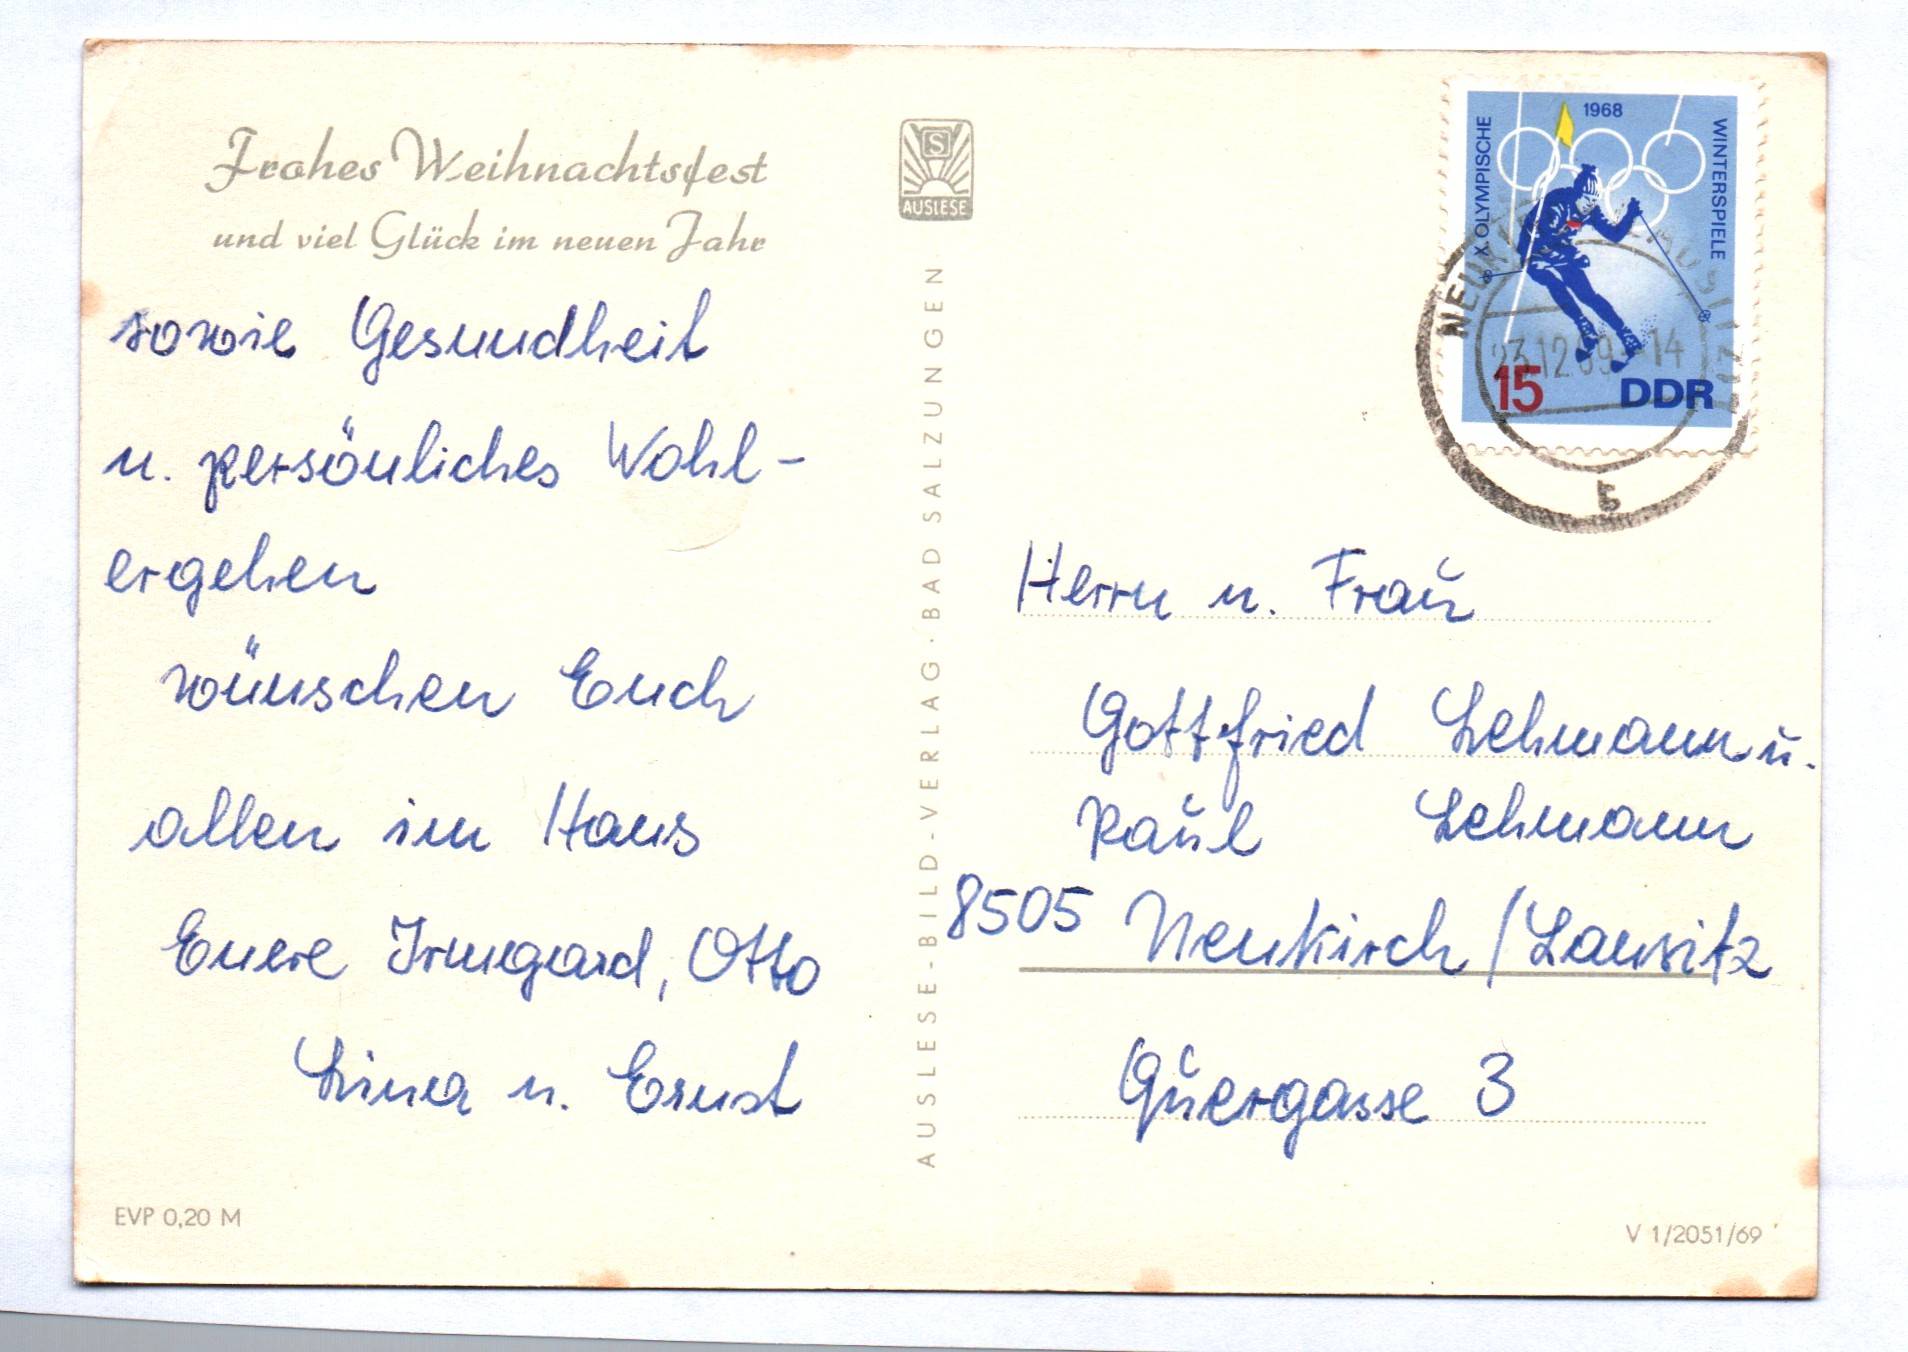 Frohes Weihnachtsfest
und viel Glück im neuen Jahr
sowie Gesundheit
u. persönliches Wohl-
ergehen
wünschen Euch
allen im Haus
Euere Irmgard, Otto
Lina u. Ernst
EVP 0,20 M
S
AUSLESE
AUSLESE-BILD-VERLAG · BAD SALZUNGEN
X. OLYMPISCHE
1968
WINTERSPIELE
15 DDR
23.12.69-14
t
Herrn u. Frau
Gottfried Lehmann u.
Paul Lehmann
8505 Neukirch / Lausitz
Quergasse 3
V 1/2051/69